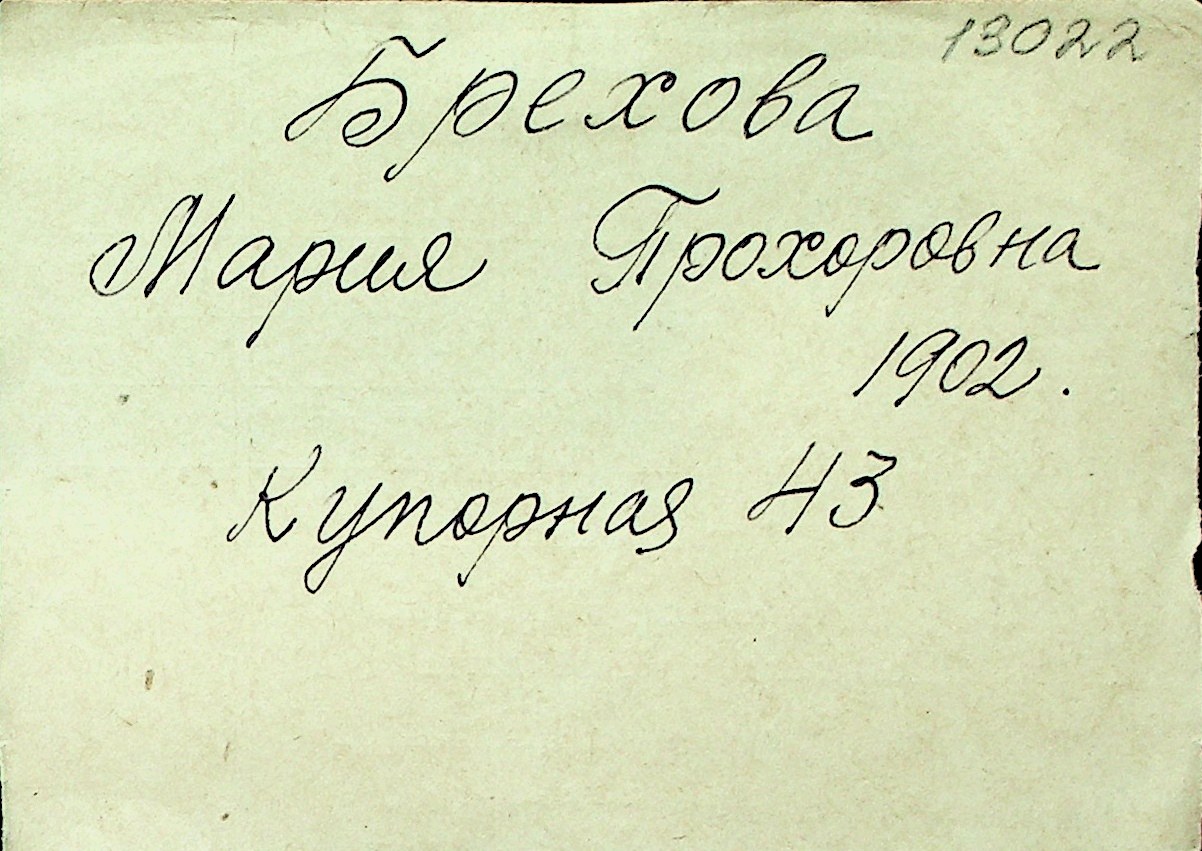 13022
Брехова
Мария Прохоровна
1902.
Купорная 43